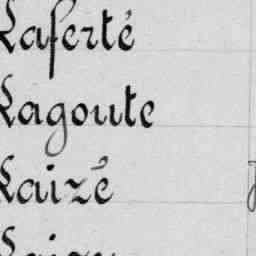 Laferté
Lagoute
Laizé